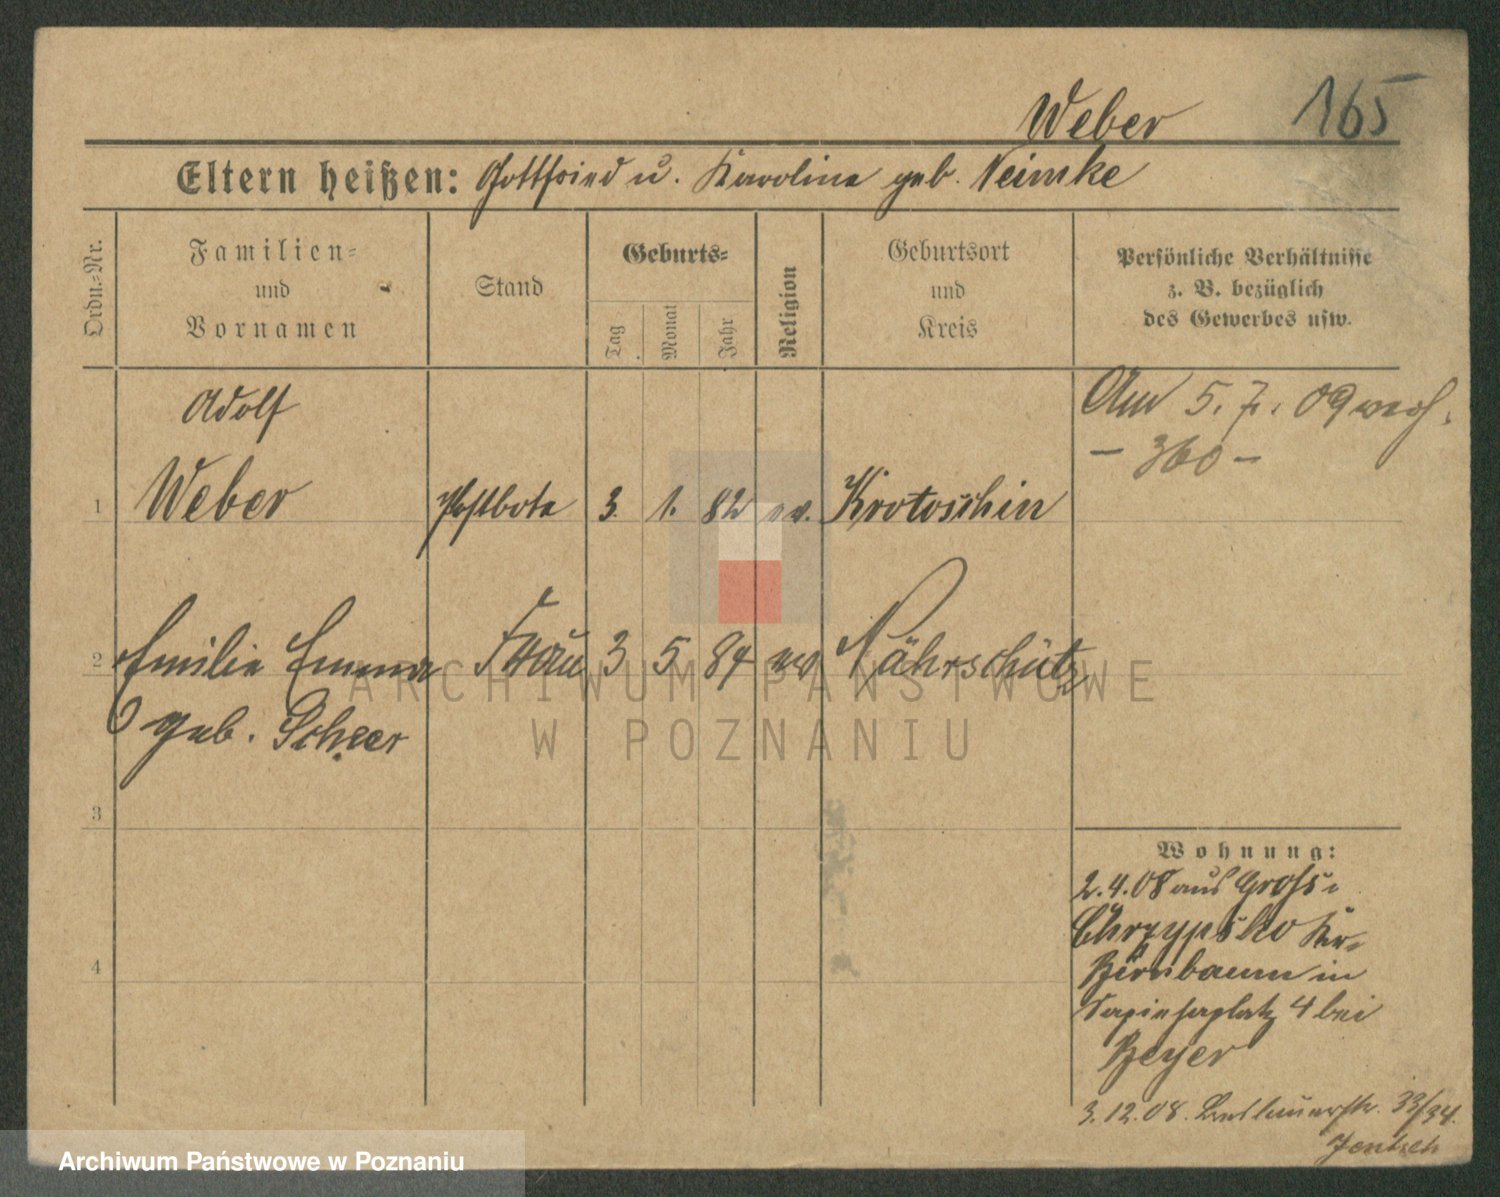 Weber 165
Eltern heißen: Gottfried u. Karoline geb. Neimke
Ordn.-Nr.
Familien-
und
Vornamen
Stand
Geburts-
Tag
Monat
Jahr
Religion
Geburtsort
und
Kreis
Persönliche Verhältnisse
z. B. bezüglich
des Gewerbes usw.
Adolf
1 Weber Postbote 3. 1. 82 ev. Krotoschin
Am 5. 7. 09
- 360 -
2 Emilie Emma Frau 3 5 84 ev Nährschütz
geb. Scheer
3
4
Wohnung:
2.4.08 aus Gross-
Chrzypsko Kr.
Birnbaum in
Sapiehaplatz 4 bei
Beyer
3.12.08. 33/34.
Jentsch
ARCHIWUM PAŃSTWOWE
W POZNANIU
Archiwum Państwowe w Poznaniu